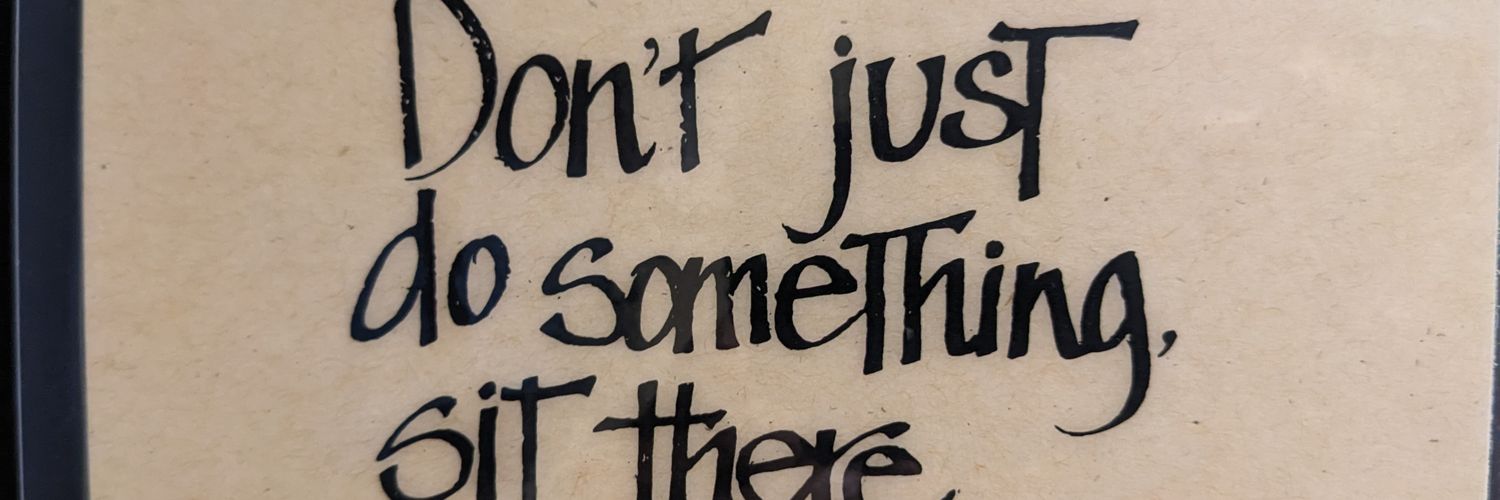 Don't just
do something,
sit there